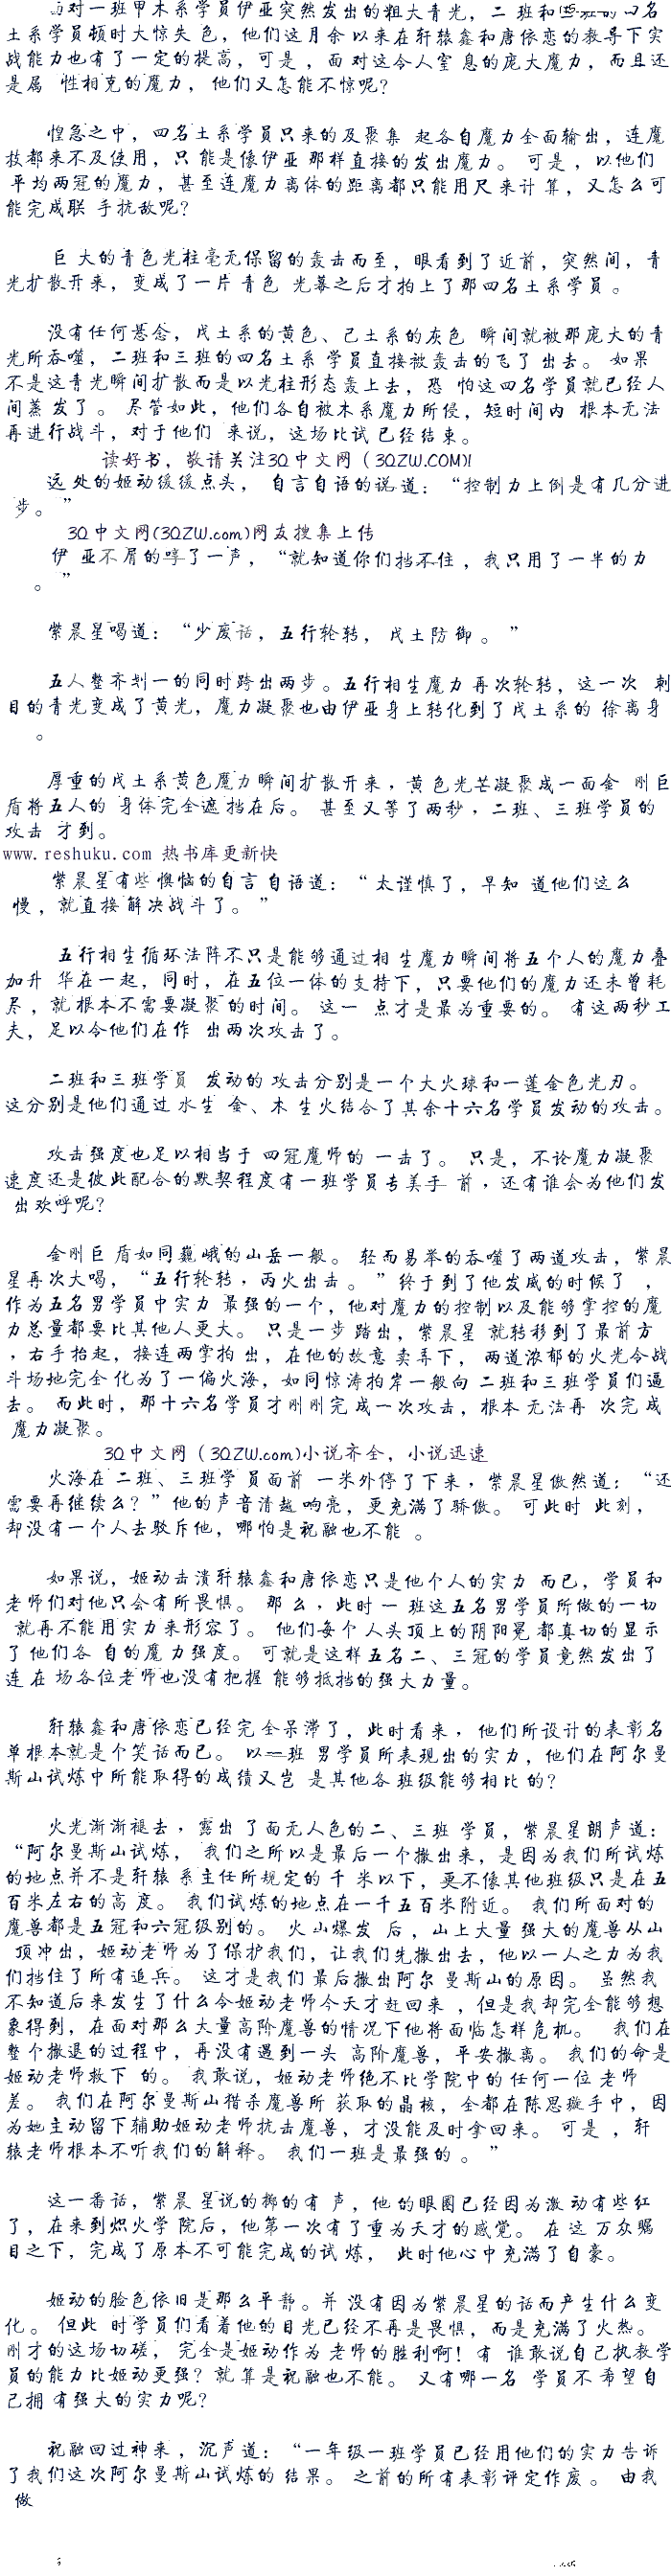 面对一班甲木系学员伊亚突然发出的粗大青光，二 班和三班的四名
土系学员顿时大惊失 色，他们这月余 以来在轩辕鑫和唐依恋的教导下实
战能力也有了一定的提高，可是 ，面 对这令人窒 息的庞大魔力，而且还
是属 性相克的魔力，他们又怎能不惊呢?
惶急之中，四名土系学员只来的及聚集 起各自魔力全面输出，连魔
技都来不及使用，只 能是像伊亚 那样直接的发出魔力。 可是 ，以他们
平均两冠的魔力，甚至连魔力离体的距离都只能用尺 来计 算，又怎么可
能完成联 手抗敌呢?
巨 大的青色光柱毫无保留的轰击而至，眼看到了近前，突然间，青
光扩散开来，变成了一片 青色 光幕之后才拍上了那四名土系学员 。
没有任何悬念，戊土系的黄色、己土系的灰色 瞬间就被那庞大的青
光所吞噬，二班和三班的四名土系 学员直接被轰击的飞了 出去。 如果
不是这青光瞬间扩散而是以光柱形态轰上去，恐 怕这四名学员就已经人
间蒸 发了 。 尽管如此，他们各自被木系魔力所侵，短时间内 根本无法
再进行战斗，对于他们 来说，这场比试 已经 结束。
读好书，敬请关注3Q中文网（3QZW.COM)!
远 处的姬动缓缓点头， 自言自语的说道：“控制力上倒是有几分进
步。 ”
3Q中文网(3QZW.com)网友搜集上传
伊 亚不屑的哼了一声，“就知道你们挡不住 ，我只用了一半的力
。 ”
紫晨星喝道：“少废话，五行轮转， 戊土防御 。 ”
五人整齐划一的同时跨出两步。五行相生魔力 再次轮转，这一次 刺
目的青光变成了黄光，魔力凝聚也由伊亚身上转化到了戊土系的 徐离身
。
厚重的戊土系黄色魔力瞬间扩散开来，黄色光芒凝聚成一面金 刚巨
盾将五人的 身体完全遮 挡在后。 甚至又等了两秒，二班、三班学员的
攻击 才到。
www. reshuku. com 热书库更新快
紫晨星有些懊恼的自言自语道：“太谨慎了，早知 道他们这么
慢 ，就直接解决战斗了。”
五行相生循环法阵不只是能够通过相 生魔力瞬间将五个人的魔力叠
加升 华在一起，同时，在五位一体的支持下，只要他们的魔力还未曾耗
尽 ，就根本不需要凝聚的时间。 这一 点才是最为重要的。 有这两秒工
夫，足以令他们在作 出两次攻击了。
二班和三班学员 发动的 攻击分别是一个大火球和一蓬金色光刃。
这分别是他们通过 水生 金、木 生火结合了其余十六名学员发动的攻击。
攻击强度也足以相当于 四冠魔师的 一击了。 只是，不论魔力凝聚
速度还是彼此配合的默契程度有一班学员专美于 前 ，还有谁会为他们发
出欢呼呢?
金刚巨 盾如同巍 峨的山岳一般。 轻而易举的吞噬了两道攻击，紫晨
星再次大喝，“五行轮转，丙火出击 。 ”终于到了他发威的时候了 ，
作为五名男学员中实力 最强的一个，他对魔力的控制以及能够掌控的魔
力总量都要比其他人更大。 只是一步 踏出，紫晨星 就转移到了最前方
，右手抬起，接连两掌拍 出，在他的故意 卖弄下， 两道浓郁的火光令战
斗场地完全 化为了一偏火海，如同惊涛拍岸一般向 二班和三班学员们逼
去。 而此时，那十六名学员才刚刚完 成一次攻击，根本 无法再 次完成
魔力凝聚。
3Q中文网（3QZW.com)小说齐全，小说迅速
火海在 二班、三班学 员面前 一米外停了下来，紫晨星傲然道：“还
需要再继续么？”他的声音清越 响亮，更充满了骄傲。 可此时 此刻，
却没有一个人去驳斥他，哪怕是祝融也不能 。
如果说，姬动击溃轩辕鑫和唐依恋只是他个人的实力 而已，学员和
老师们对他只会有所畏惧。 那 么，此时 一 班这五名男学员所做的一切
就再不能用实力来形容了。 他们每个 人头顶上的阴阳冕 都真切的显示
了他们各 自的魔力强度。 可就是这样 五名二、三冠的学员竟然发出了
连 在 场各位老师也没有把握 能够抵挡的强大力量。
轩辕鑫和唐依恋已经完 全呆滞了，此时看来， 他们所设计的表彰名
单根本就是个笑话而已。 以一班 男学员所表现出的实力，他们在阿尔曼
斯山试炼中所能取得的成绩又岂 是其他各 班级能够相比 的?
火光渐渐褪去 ，露出 了面无人色的二、三班 学员，紫晨星朗声道：
“阿尔曼斯山试炼， 我们之所以是最后一个撤出来，是因为我们所试炼
的地点并不是轩辕 系主任所规定的 千 米以下，更不像其他班级只是在五
百米左右的高 度。 我们试炼的地点在一千五百米附近。 我们所面对的
魔兽都是五冠和六冠级别的。 火 山爆发 后 ，山上大量 强大的魔兽从山
顶冲出，姬动老师为了保护我们，让我们先撤出去，他以一人之力为我
们挡住了所有追兵。 这才是我们 最后撤出阿尔 曼斯山的原因。 虽然我
不知道后来发生了什么令姬动老师今天才赶回来 ，但是我却完全能够想
象得到，在面对那么大量高阶魔兽的情况下他将面临怎样 危机。 我们在
整个撤退的过程中，再没有遇到一头 高阶魔兽，平安撤离。 我们的命是
姬动老师救下 的。 我敢说，姬动老师绝不比学院中的任何一位 老师
差。 我们在阿尔曼斯山猎杀魔兽所 获取的晶核，全都在陈思璇手中，因
为她主动留下辅助姬动老师抗击魔兽，才没能及时拿回来。 可是 ，轩
辕老师根本不听我们的解释。 我们一班是最强的 。 ”
这一番话，紫晨 星说的掷的有 声，他 的眼圈已经因为激 动有些红
了，在来到炽火学 院后，他第一次有了重为天才的感觉。 在 这 万众瞩
目之下，完成了原本不可能完成的试 炼， 此时他心中充满了自豪。
姬动的脸色依旧是那么平静。并 没有因为紫晨星的话而产生什么变
化。 但此 时学员们看着他的目光已经不再是畏惧，而是充满了火热。
刚才的这场切磋， 完全是姬动作为 老师的胜利啊! 有 谁敢说自己执教学
员的能力比姬动更强? 就 算是祝融也不能。 又有哪一名 学员不 希望自
己拥 有强大的实力呢?
祝融回过神来 ，沉声道：“一年级一班学员已经用他们的实力告诉
了我们这次阿尔曼斯山试炼的 结果。 之前的所有表彰评定作废 。 由我
做